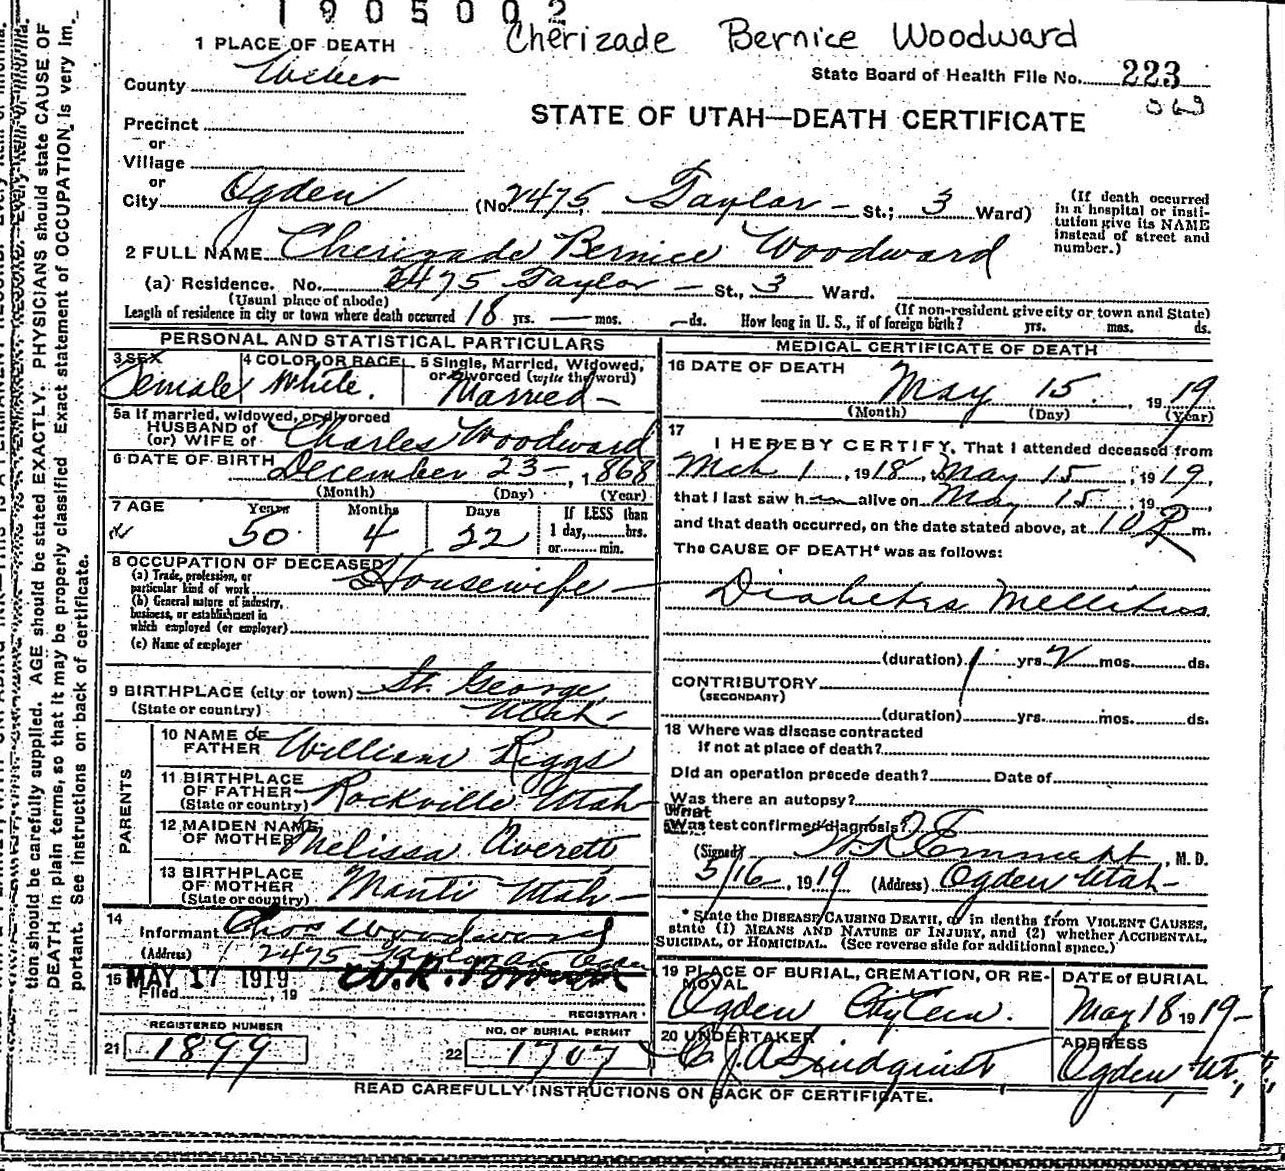 1905002
Cherizade Bernice Woodward
1 PLACE OF DEATH
County Weber
State Board of Health File No. 223
363
STATE OF UTAH—DEATH CERTIFICATE
Precinct
or
Village
or
City Ogden (No. 2475 Taylor — St.; 3 Ward)
(If death occurred in a hospital or institution give its NAME instead of street and number.)
2 FULL NAME Cherizade Bernice Woodward
(a) Residence. No. 2475 Taylor — St., 3 Ward.
(Usual place of abode) (If non-resident give city or town and State)
Length of residence in city or town where death occurred 18 yrs. — mos. — ds. How long in U. S., if of foreign birth? yrs. mos. ds.
PERSONAL AND STATISTICAL PARTICULARS
3 SEX Female
4 COLOR OR RACE White.
5 Single, Married, Widowed, or Divorced (write the word) Married —
5a If married, widowed, or divorced
HUSBAND of
(or) WIFE of Charles Woodward
6 DATE OF BIRTH December 23 —, 1868
(Month) (Day) (Year)
7 AGE Years Months Days If LESS than
50 4 22 1 day, hrs.
or min.
8 OCCUPATION OF DECEASED
(a) Trade, profession, or particular kind of work Housewife —
(b) General nature of industry, business, or establishment in which employed (or employer)
(c) Name of employer
9 BIRTHPLACE (city or town) St. George
(State or country) Utah —
PARENTS
10 NAME OF FATHER William Riggs
11 BIRTHPLACE OF FATHER (State or country) Rockville Utah
12 MAIDEN NAME OF MOTHER Melissa Averett
13 BIRTHPLACE OF MOTHER (State or country) Manti Utah —
14
Informant Chas Woodward
(Address) 2475 Taylor
15 MAY 17 1919
Filed , 19
REGISTRAR
REGISTERED NUMBER
21 1899
NO. OF BURIAL PERMIT
22 1707
MEDICAL CERTIFICATE OF DEATH
16 DATE OF DEATH
May 15. , 1919
(Month) (Day) (Year)
17
I HEREBY CERTIFY, That I attended deceased from
Mch 1, 1918, May 15, 1919,
that I last saw h alive on May 15, 19 ,
and that death occurred, on the date stated above, at 10 P m.
The CAUSE OF DEATH* was as follows:
Diabetes Mellitus
(duration) 1 yrs. 2 mos. ds.
CONTRIBUTORY
(SECONDARY)
(duration) yrs. mos. ds.
18 Where was disease contracted
if not at place of death?
Did an operation precede death? Date of
Was there an autopsy?
What
Was test confirmed diagnosis?
(Signed) , M. D.
5/16, 1919 (Address) Ogden Utah —
* State the DISEASE CAUSING DEATH, or in deaths from VIOLENT CAUSES,
state (1) MEANS AND NATURE OF INJURY, and (2) whether ACCIDENTAL,
SUICIDAL, or HOMICIDAL. (See reverse side for additional space.)
19 PLACE OF BURIAL, CREMATION, OR REMOVAL
Ogden City Cem.
DATE OF BURIAL
May 18 1919 —
20 UNDERTAKER
Lindquist
ADDRESS
Ogden, Ut,
READ CAREFULLY INSTRUCTIONS ON BACK OF CERTIFICATE.
tion should be carefully supplied. AGE should be stated EXACTLY. PHYSICIANS should state CAUSE OF
DEATH in plain terms, so that it may be properly classified. Exact statement of OCCUPATION is very im-
portant. See instructions on back of certificate.